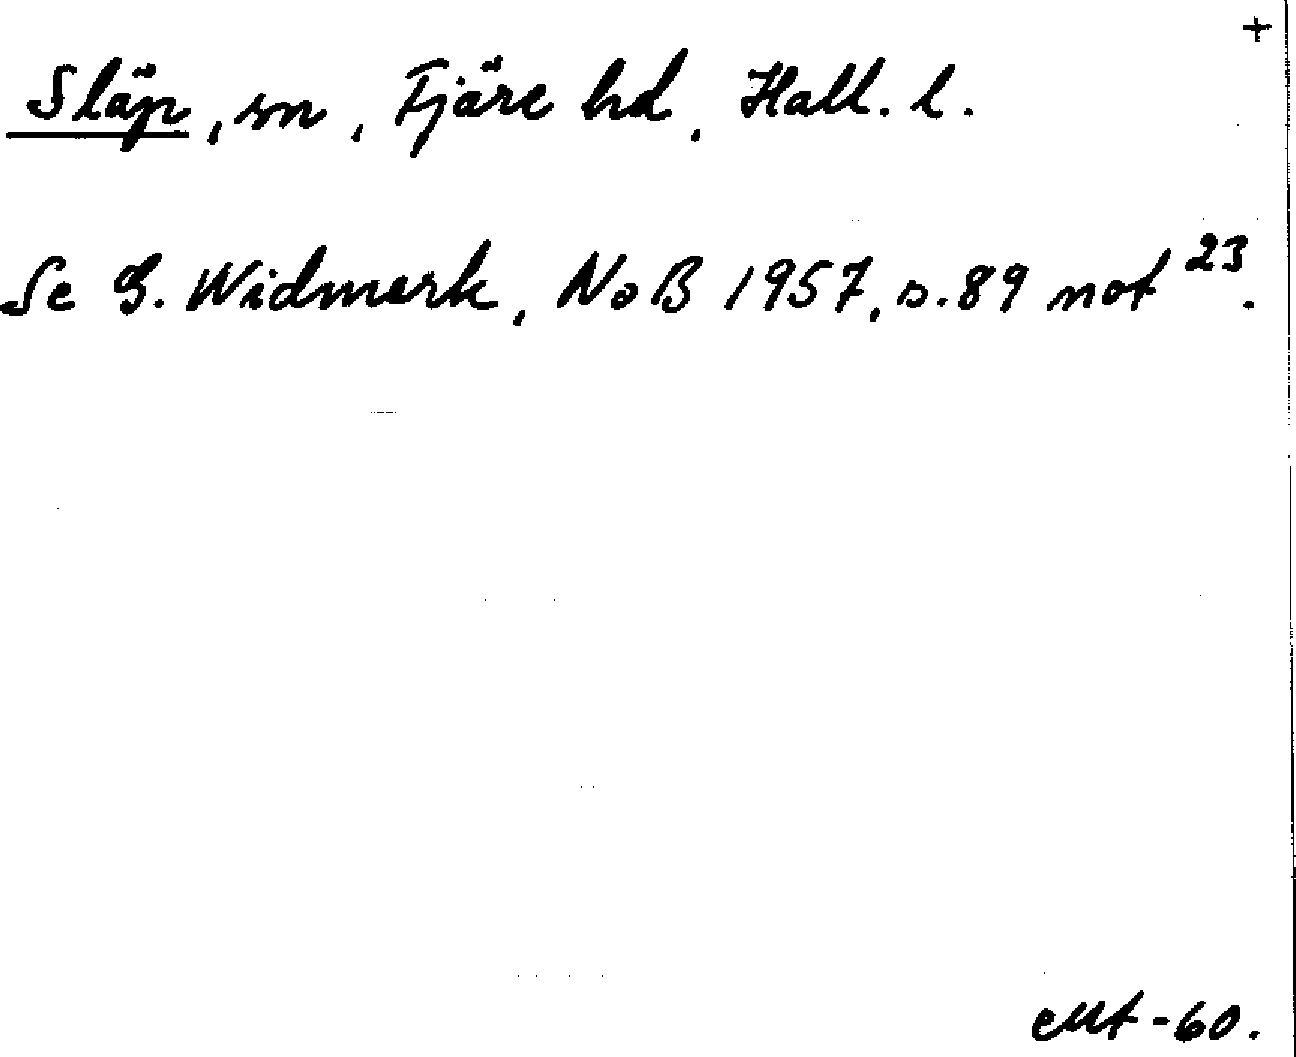 +
Släp, sn, Fjäre hd, Hall. l.
Se G. Widmark, NoB 1957, s. 89 not 23.
EMt -60.